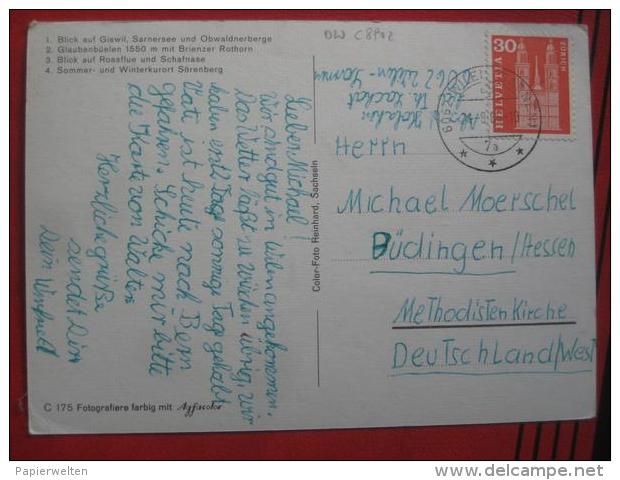 1. Blick auf Giswil, Sarnersee und Obwaldnerberge
2. Glaubenbüelen 1550 m mit Brienzer Rothorn
3. Blick auf Rossflue und Schafnase
4. Sommer- und Winterkurort Sörenberg
Lieber Michael!
Wir sind gut in Wilen angekommen.
Das Wetter läßt zu wünschen übrig, wir
haben erst 2 Tag sonnige Tag gehabt
Vati ist heute nach Bern
gefahren. Schicke mir bitte
die Karte von Walter
Herzliche grüße
sendet Dir
Dein Winfried
C 175 Fotografiere farbig mit Agfacolor
Color-Foto Reinhard, Sachseln
30
HELVETIA
ZÜRICH
Herrn
Michael Moerschel
Büdingen/Hessen
Methodistenkirche
Deutschland/West
Papierwelten
www.delcampe.net